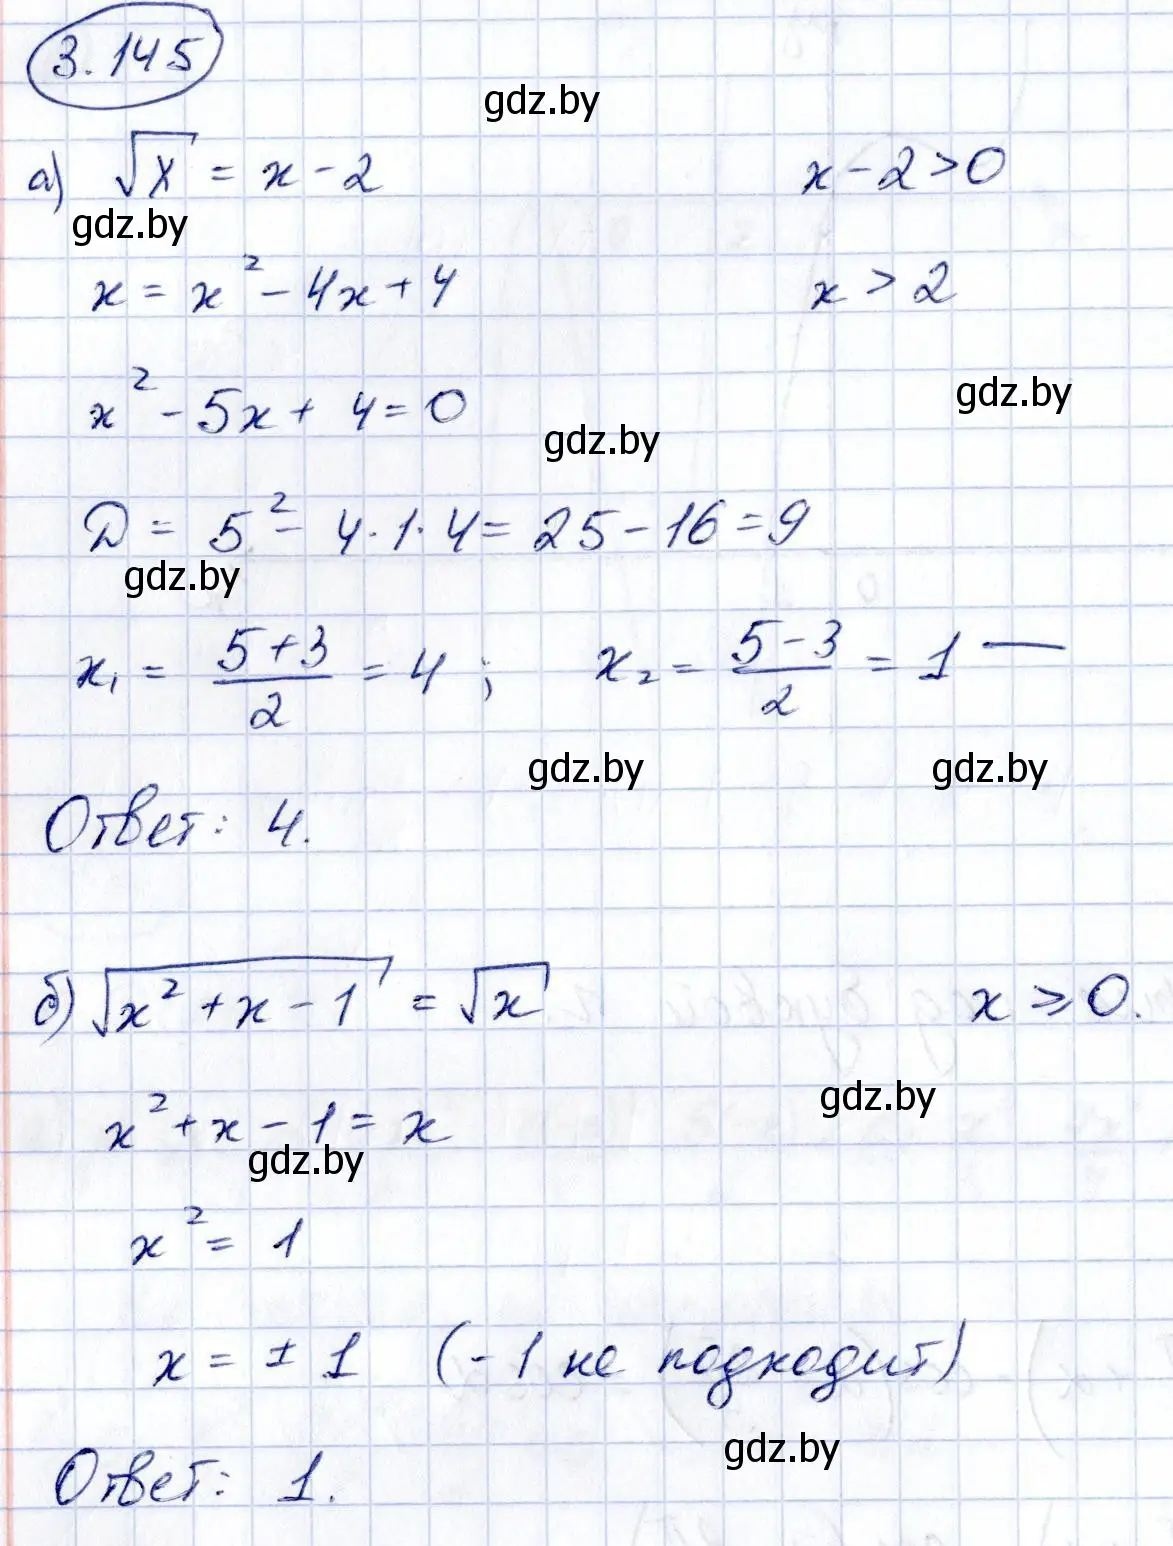 3.145
gdz.by
а) √x = x - 2        x - 2 > 0
gdz.by
x = x² - 4x + 4        x > 2
gdz.by
x² - 5x + 4 = 0
gdz.by
D = 5² - 4·1·4 = 25 - 16 = 9
gdz.by
x₁ = (5+3)/2 = 4 ;  x₂ = (5-3)/2 = 1 —
gdz.by gdz.by
Ответ: 4.
б) √(x² + x - 1) = √x        x ⩾ 0.
gdz.by
x² + x - 1 = x
gdz.by
x² = 1
x = ± 1 (-1 не подходит)
gdz.by
Ответ: 1.